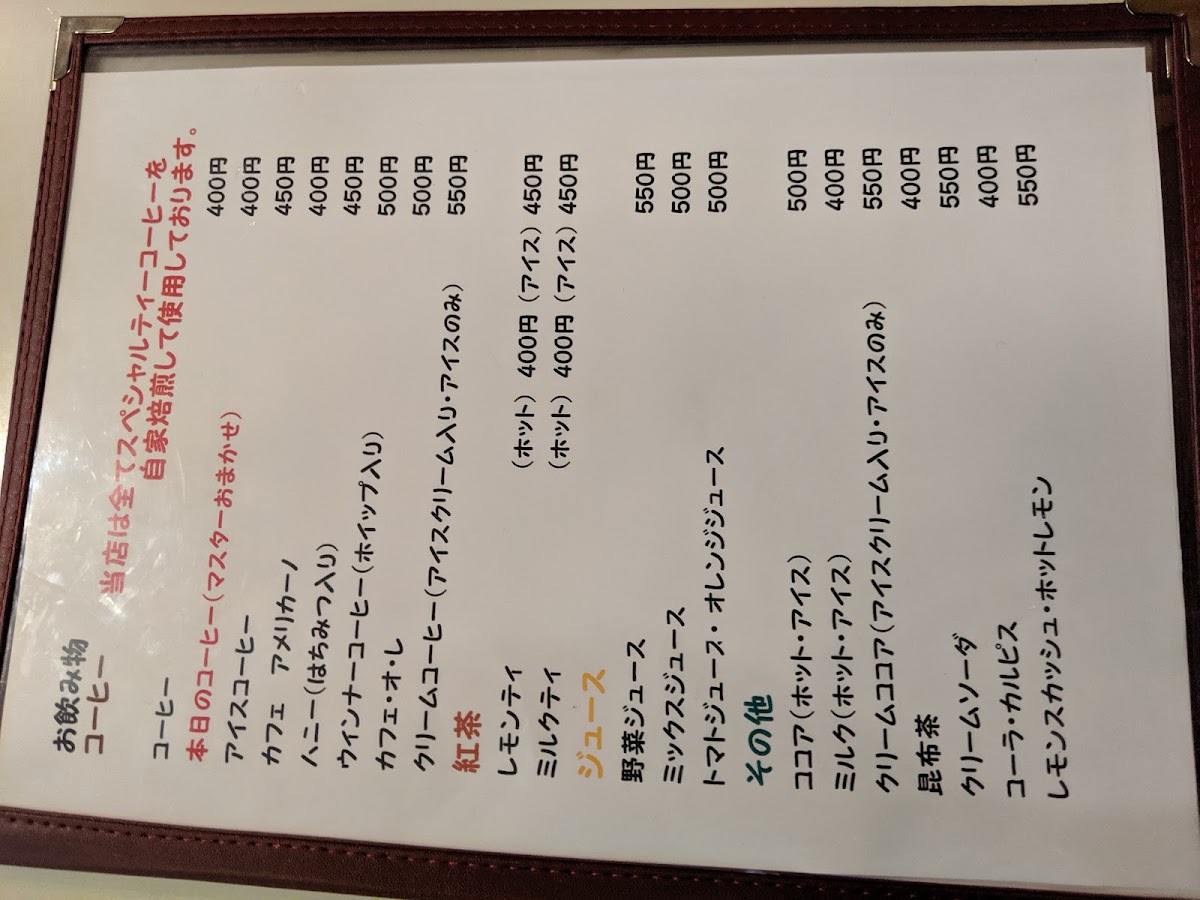 お飲み物
コーヒー
当店は全てスペシャルティーコーヒーを
自家焙煎して使用しております。
コーヒー 400円
本日のコーヒー(マスターおまかせ) 400円
アイスコーヒー 450円
カフェ アメリカーノ 400円
ハニー(はちみつ入り) 450円
ウインナーコーヒー(ホイップ入り) 500円
カフェ・オ・レ 500円
クリームコーヒー(アイスクリーム入り・アイスのみ) 550円
紅茶
レモンティ (ホット) 400円 (アイス) 450円
ミルクティ (ホット) 400円 (アイス) 450円
ジュース
野菜ジュース 550円
ミックスジュース 500円
トマトジュース・オレンジジュース 500円
その他
ココア(ホット・アイス) 500円
ミルク(ホット・アイス) 400円
クリームココア(アイスクリーム入り・アイスのみ) 550円
昆布茶 400円
クリームソーダ 550円
コーラ・カルピス 400円
レモンスカッシュ・ホットレモン 550円